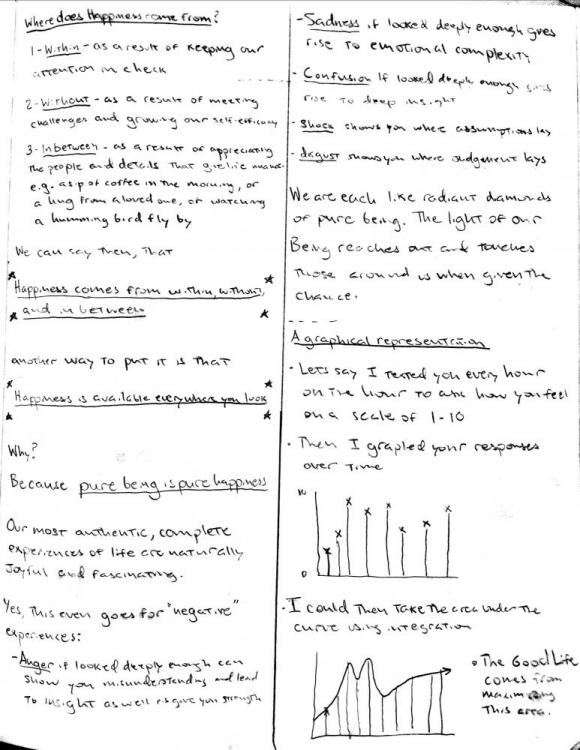 Where does Happiness come from?
1 - Within - as a result of keeping our
attention in check
2 - Without - as a result of meeting
challenges and growing our self-efficacy
3 - In between - as a result of appreciating
the people and details that give life nuance.
e.g. a spot coffee in the morning, or
a hug from a loved one, or watching
a humming bird fly by
We can say then, that
Happiness comes from within, without,
and in between
another way to put it is that
Happiness is available everywhere you look
Why?
Because pure being is pure happiness
Our most authentic, complete
experiences of life are naturally
Joyful and fascinating.
Yes, this even goes for "negative"
experiences:
- Anger if looked deeply enough can
show you misunderstanding and lead
to insight as well as give you strength
- Sadness if looked deeply enough gives
rise to emotional complexity
- Confusion if looked deeply enough gives
rise to deep insight
- Shock shows you where assumptions lay
- disgust shows you where judgement lays
We are each like radiant diamonds
of pure being. The light of our
Being reaches out and touches
those around us when given the
chance.
A graphical representation
- Lets say I texted you every hour
on the hour to ask how you feel
on a scale of 1-10
- Then I graphed your responses
over time
10
0
- I could then take the area under the
curve using integration
The Good Life
comes from
maximizing
this area.